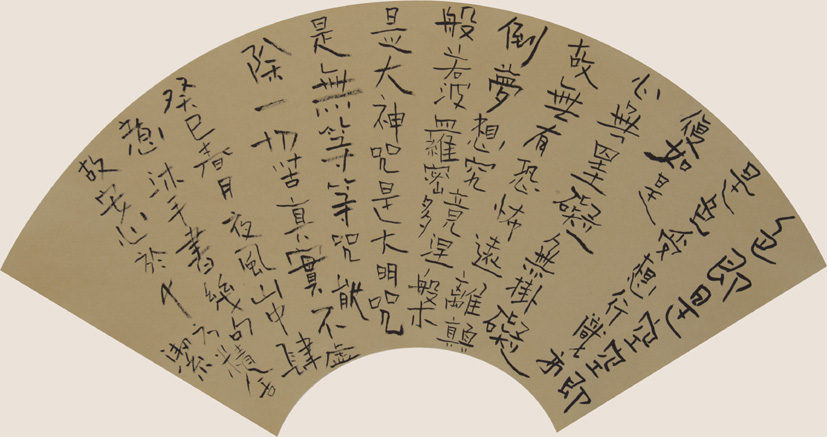 色即是空空即
是色受想行識亦
復如是
心無罣礙無掛礙
故無有恐怖遠離顛
倒夢想究竟涅槃
般若波羅密多
是大神咒是大明咒
是無等等咒能
除一切苦真實不虛
癸巳春月夜風山中肆
意沐手書幾句精
故安心於
潔